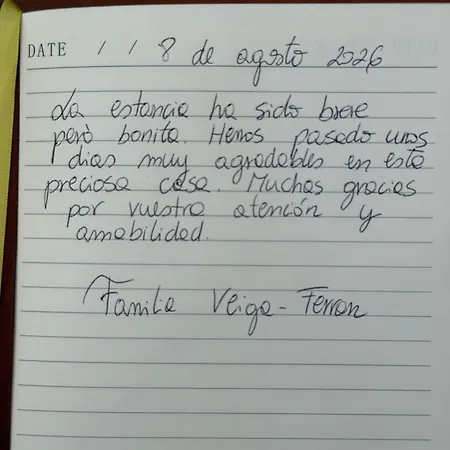 DATE / / 8 de agosto 2026
La estancia ha sido breve
però bonita. Hemos pasado unos
dias muy agradables en esta
preciosa casa. Muchas gracias
por vuestra atención y
amabilidad.
Familia Veiga-Ferran